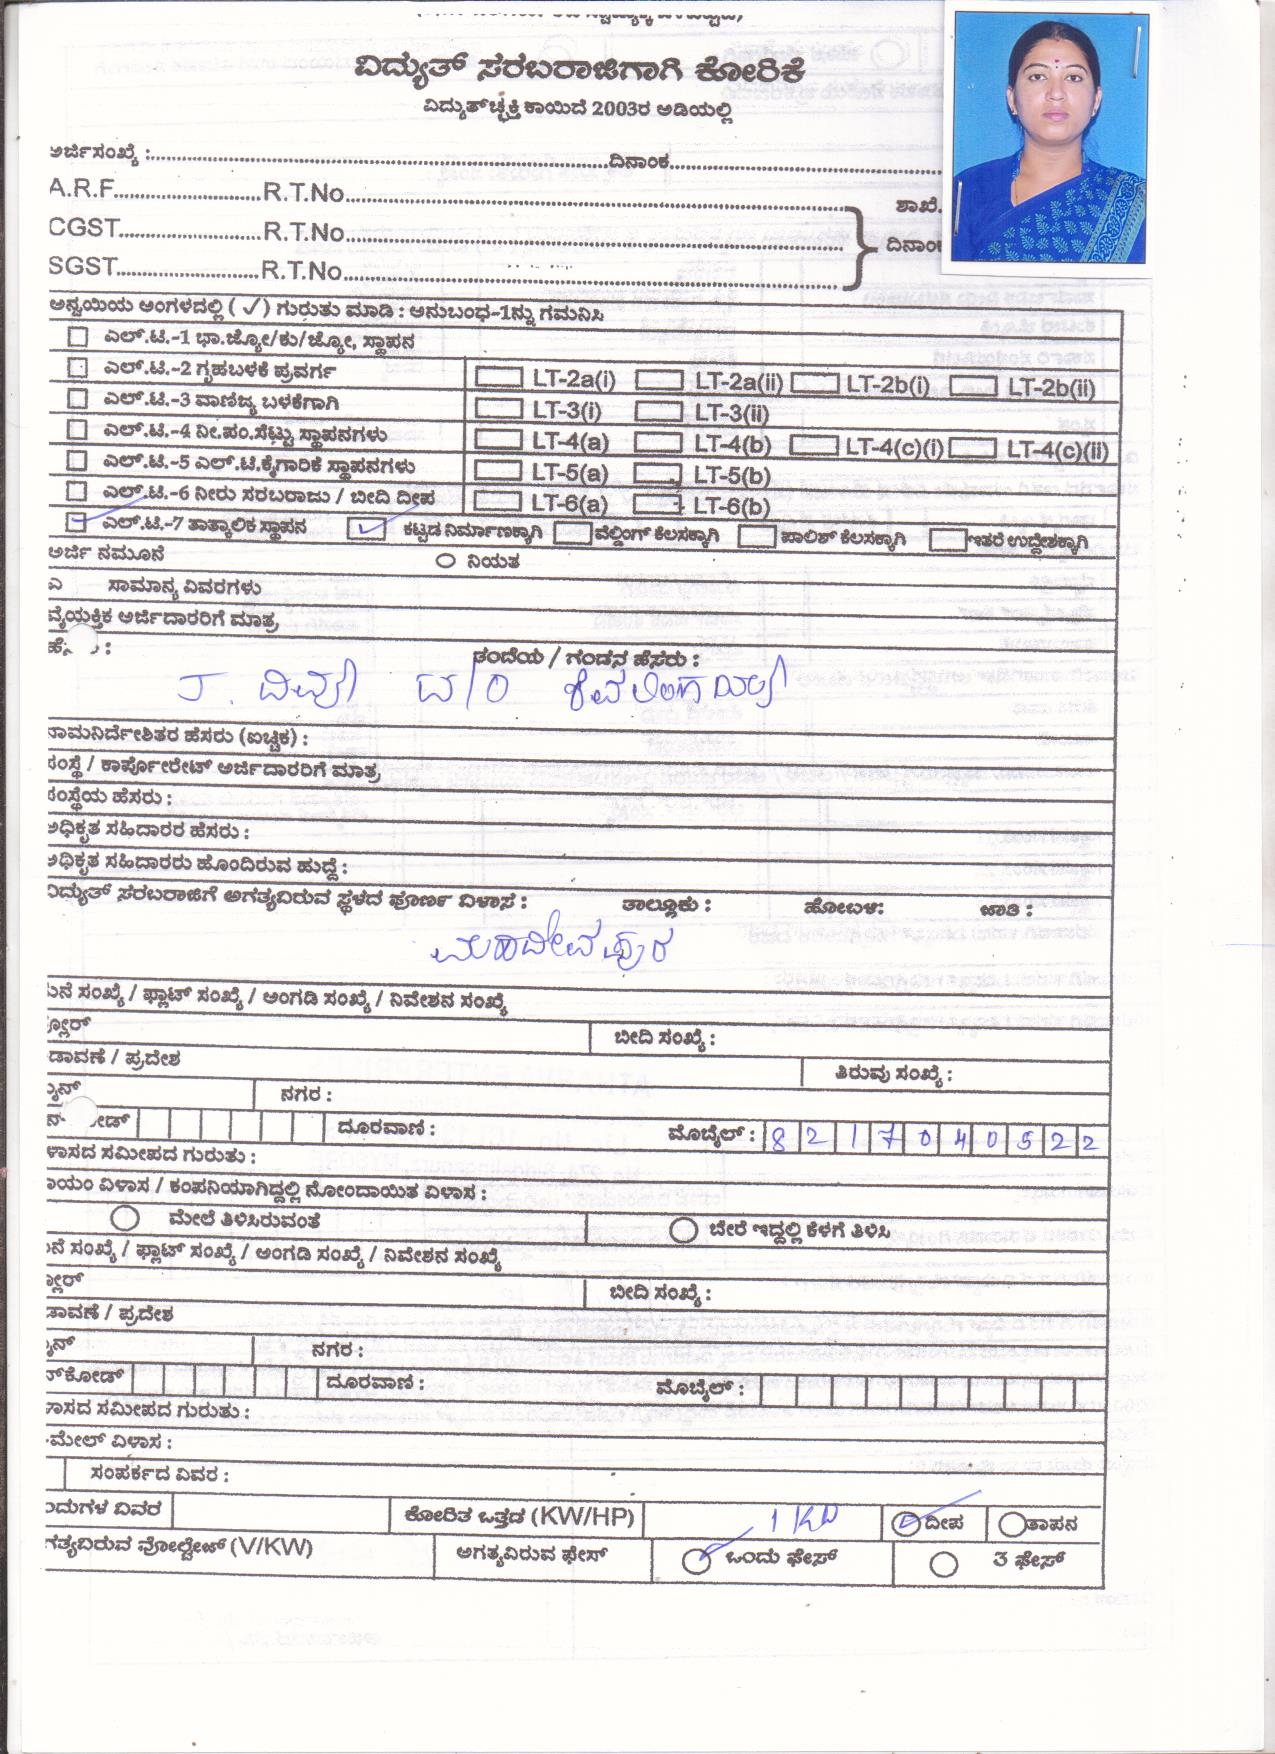 ವಿದ್ಯುತ್ ಸರಬರಾಜಿಗಾಗಿ ಕೋರಿಕೆ
ವಿದ್ಯುತ್‌ಚ್ಛಕ್ತಿ ಕಾಯಿದೆ 2003ರ ಅಡಿಯಲ್ಲಿ
ಅರ್ಜಿಸಂಖ್ಯೆ :..........ದಿನಾಂಕ..........
A.R.F..........R.T.No.......... ಶಾಖೆ.
CGST..........R.T.No.......... ದಿನಾಂಕ
SGST..........R.T.No..........
ಅನ್ವಯಿಯ ಅಂಗಳದಲ್ಲಿ ( ✓ ) ಗುರುತು ಮಾಡಿ : ಅನುಬಂಧ-1ನ್ನು ಗಮನಿಸಿ
ಎಲ್.ಟಿ.-1 ಭಾ.ಜ್ಯೋ/ಕು/ಜ್ಯೋ, ಸ್ಥಾಪನ
ಎಲ್.ಟಿ.-2 ಗೃಹಬಳಕೆ ಪ್ರವರ್ಗ LT-2a(i) LT-2a(ii) LT-2b(i) LT-2b(ii)
ಎಲ್.ಟಿ.-3 ವಾಣಿಜ್ಯ ಬಳಕೆಗಾಗಿ LT-3(i) LT-3(ii)
ಎಲ್.ಟಿ.-4 ನೀ.ಪಂ.ಸೆಟ್ಟು ಸ್ಥಾಪನಗಳು LT-4(a) LT-4(b) LT-4(c)(i) LT-4(c)(ii)
ಎಲ್.ಟಿ.-5 ಎಲ್.ಟಿ.ಕೈಗಾರಿಕೆ ಸ್ಥಾಪನಗಳು LT-5(a) LT-5(b)
ಎಲ್.ಟಿ.-6 ನೀರು ಸರಬರಾಜು / ಬೀದಿ ದೀಪ LT-6(a) LT-6(b)
ಎಲ್.ಟಿ.-7 ತಾತ್ಕಾಲಿಕ ಸ್ಥಾಪನ ✓ ಕಟ್ಟಡ ನಿರ್ಮಾಣಕ್ಕಾಗಿ ವೆಲ್ಡಿಂಗ್ ಕೆಲಸಕ್ಕಾಗಿ ಪಾಲಿಶ್ ಕೆಲಸಕ್ಕಾಗಿ ಇತರೆ ಉದ್ದೇಶಕ್ಕಾಗಿ
ಅರ್ಜಿ ನಮೂನೆ ನಿಯತ
ಎ ಸಾಮಾನ್ಯ ವಿವರಗಳು
ವೈಯಕ್ತಿಕ ಅರ್ಜಿದಾರರಿಗೆ ಮಾತ್ರ
ತಂದೆಯ / ಗಂಡನ ಹೆಸರು :
ನಾಮನಿರ್ದೇಶಿತರ ಹೆಸರು (ಐಚ್ಛಿಕ) :
ಸಂಸ್ಥೆ / ಕಾರ್ಪೋರೇಟ್ ಅರ್ಜಿದಾರರಿಗೆ ಮಾತ್ರ
ಸಂಸ್ಥೆಯ ಹೆಸರು :
ಅಧಿಕೃತ ಸಹಿದಾರರ ಹೆಸರು :
ಅಧಿಕೃತ ಸಹಿದಾರರು ಹೊಂದಿರುವ ಹುದ್ದೆ :
ವಿದ್ಯುತ್ ಸರಬರಾಜಿಗೆ ಅಗತ್ಯವಿರುವ ಸ್ಥಳದ ಪೂರ್ಣ ವಿಳಾಸ : ತಾಲ್ಲೂಕು : ಹೋಬಳಿ: ಜಾತಿ :
ಮಹಾದೇವಪುರ
ಸಂಖ್ಯೆ / ಫ್ಲಾಟ್ ಸಂಖ್ಯೆ / ಅಂಗಡಿ ಸಂಖ್ಯೆ / ನಿವೇಶನ ಸಂಖ್ಯೆ
ಬೀದಿ ಸಂಖ್ಯೆ :
ಡಾವಣೆ / ಪ್ರದೇಶ ತಿರುವು ಸಂಖ್ಯೆ :
ನಗರ :
ದೂರವಾಣಿ : ಮೊಬೈಲ್ : 8217040522
ಳಾಸದ ಸಮೀಪದ ಗುರುತು :
ಾಯಂ ವಿಳಾಸ / ಕಂಪನಿಯಾಗಿದ್ದಲ್ಲಿ ನೋಂದಾಯಿತ ವಿಳಾಸ :
ಮೇಲೆ ತಿಳಿಸಿರುವಂತೆ ಬೇರೆ ಇದ್ದಲ್ಲಿ ಕೆಳಗೆ ತಿಳಿಸಿ
ನೆ ಸಂಖ್ಯೆ / ಫ್ಲಾಟ್ ಸಂಖ್ಯೆ / ಅಂಗಡಿ ಸಂಖ್ಯೆ / ನಿವೇಶನ ಸಂಖ್ಯೆ
ಬೀದಿ ಸಂಖ್ಯೆ :
ಡಾವಣೆ / ಪ್ರದೇಶ
ನಗರ :
ನ್‌ಕೋಡ್ ದೂರವಾಣಿ : ಮೊಬೈಲ್ :
ಾಸದ ಸಮೀಪದ ಗುರುತು :
-ಮೇಲ್ ವಿಳಾಸ :
ಸಂಪರ್ಕದ ವಿವರ :
ಂದುಗಳ ವಿವರ ಕೋರಿತ ಒತ್ತಡ (KW/HP) 1 KW ದೀಪ ತಾಪನ
ಗತ್ಯವಿರುವ ವೋಲ್ಟೇಜ್ (V/KW) ಅಗತ್ಯವಿರುವ ಫೇಸ್ ಒಂದು ಫೇಸ್ 3 ಫೇಸ್